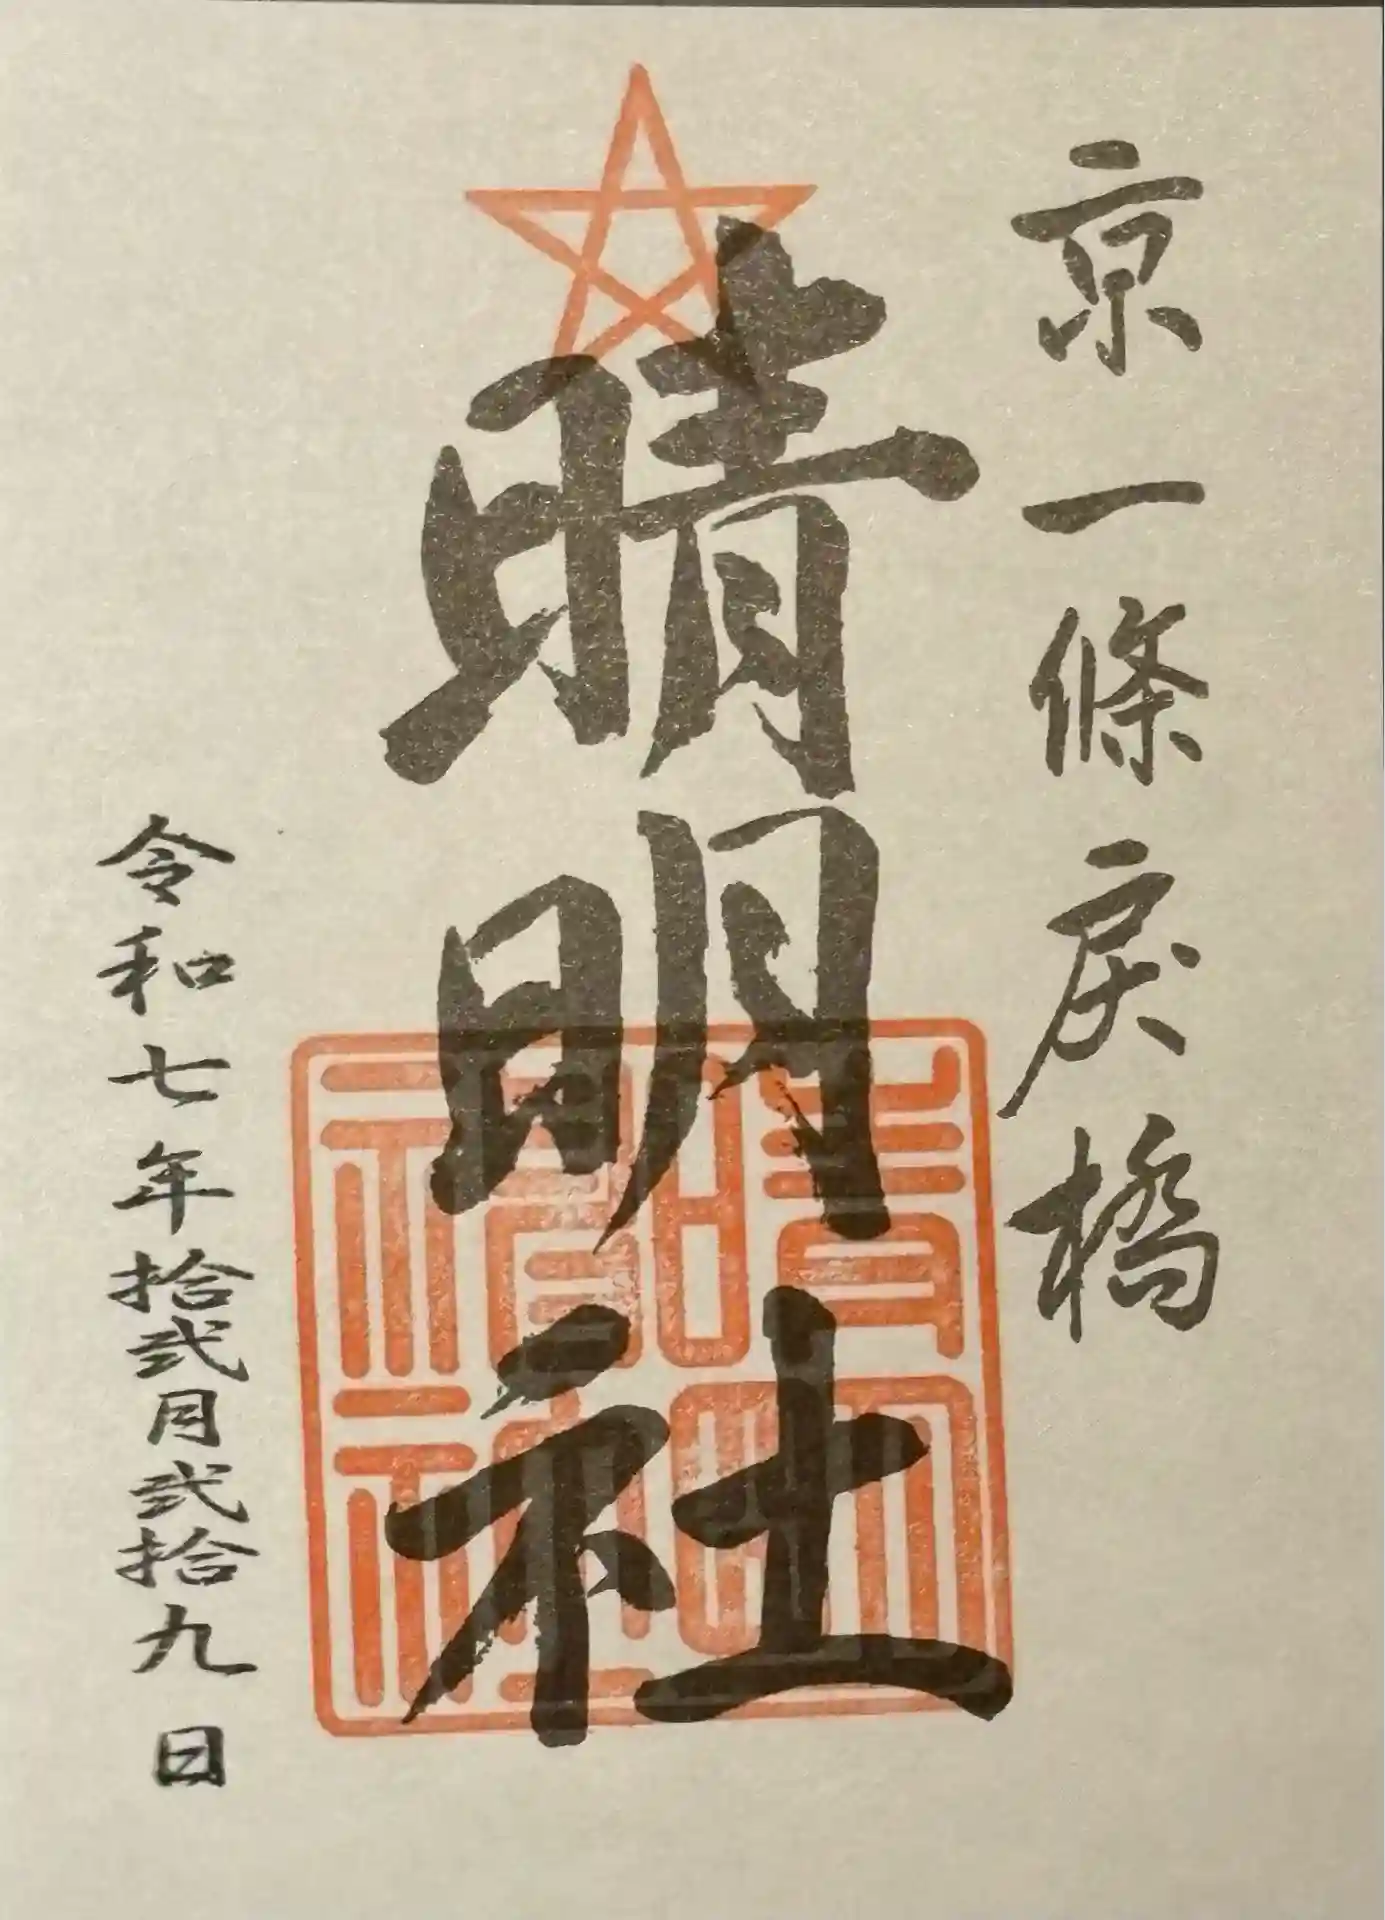 京一條戻橋
晴明社
令和七年拾弐月弐拾九日